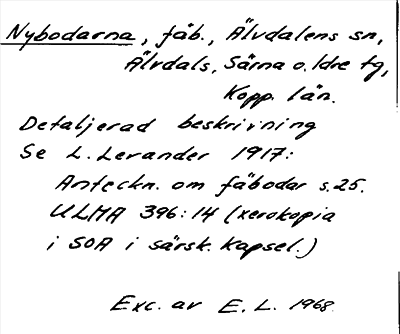 Nybodarna, fäb., Älvdalens sn,
Älvdals, Särna o. Idre tg,
Kopp. län.
Detaljerad beskrivning
Se L. Levander 1917:
Anteckn. om fäbodar s. 25.
ULMA 396:14 (xerokopia
i SOA i särsk. kapsel.)
Exc. av E. L. 1968.